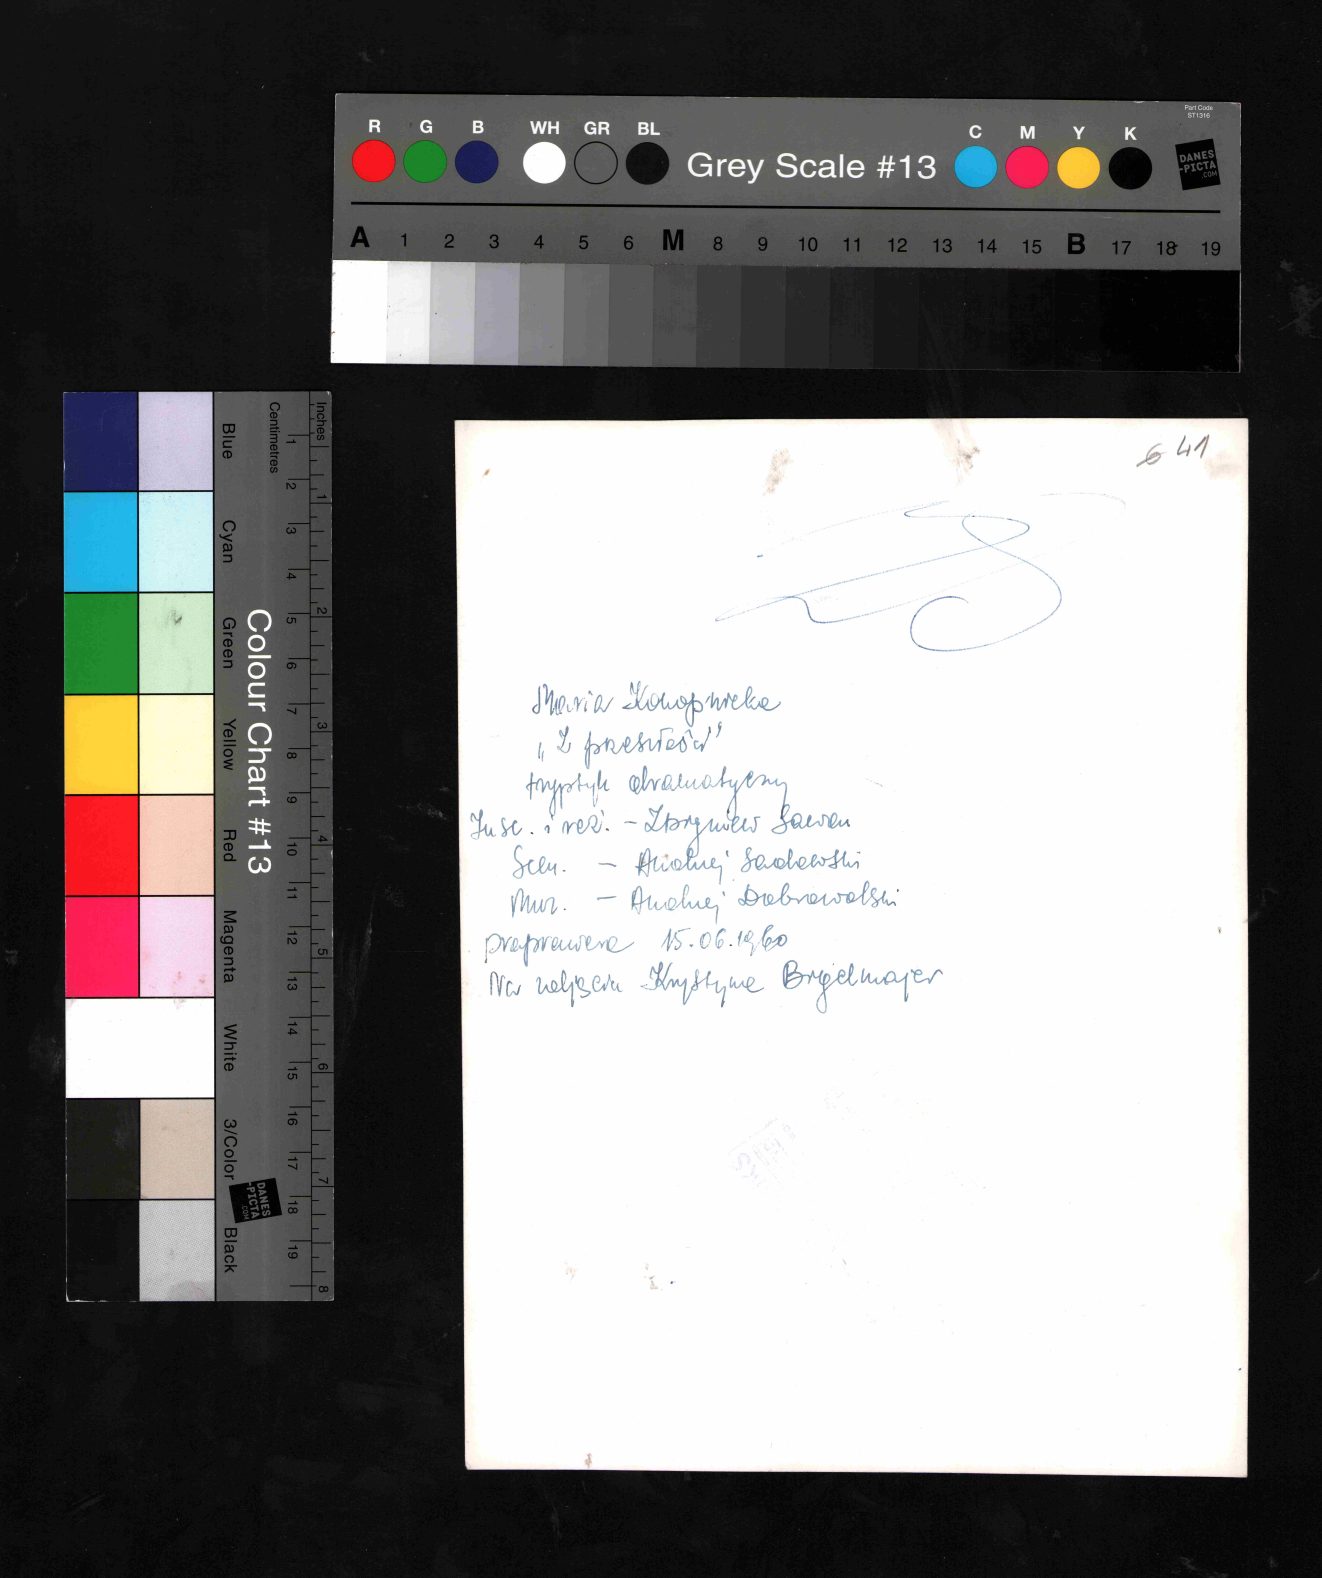 Part Code
ST1316
R G B WH GR BL Grey Scale #13 C M Y K
DANES
-PICTA
.COM
A 1 2 3 4 5 6 M 8 9 10 11 12 13 14 15 B 17 18 19
Colour Chart #13
Blue
Cyan
Green
Yellow
Red
Magenta
White
3/Color
Black
Centimetres
1 2 3 4 5 6 7 8 9 10 11 12 13 14 15 16 17 18 19
Inches
1 2 3 4 5 6 7 8
DANES
-PICTA
.COM
41
Maria Konopnicka
„Z przeszłości”
tryptyk dramatyczny
Insc. i reż. – Zbigniew Sawan
Scen. – Andrzej Sadowski
Muz. – Andrzej Dobrowolski
praprawera 15.06.1960
Na zdjęciu Krystyna Brigelmajer